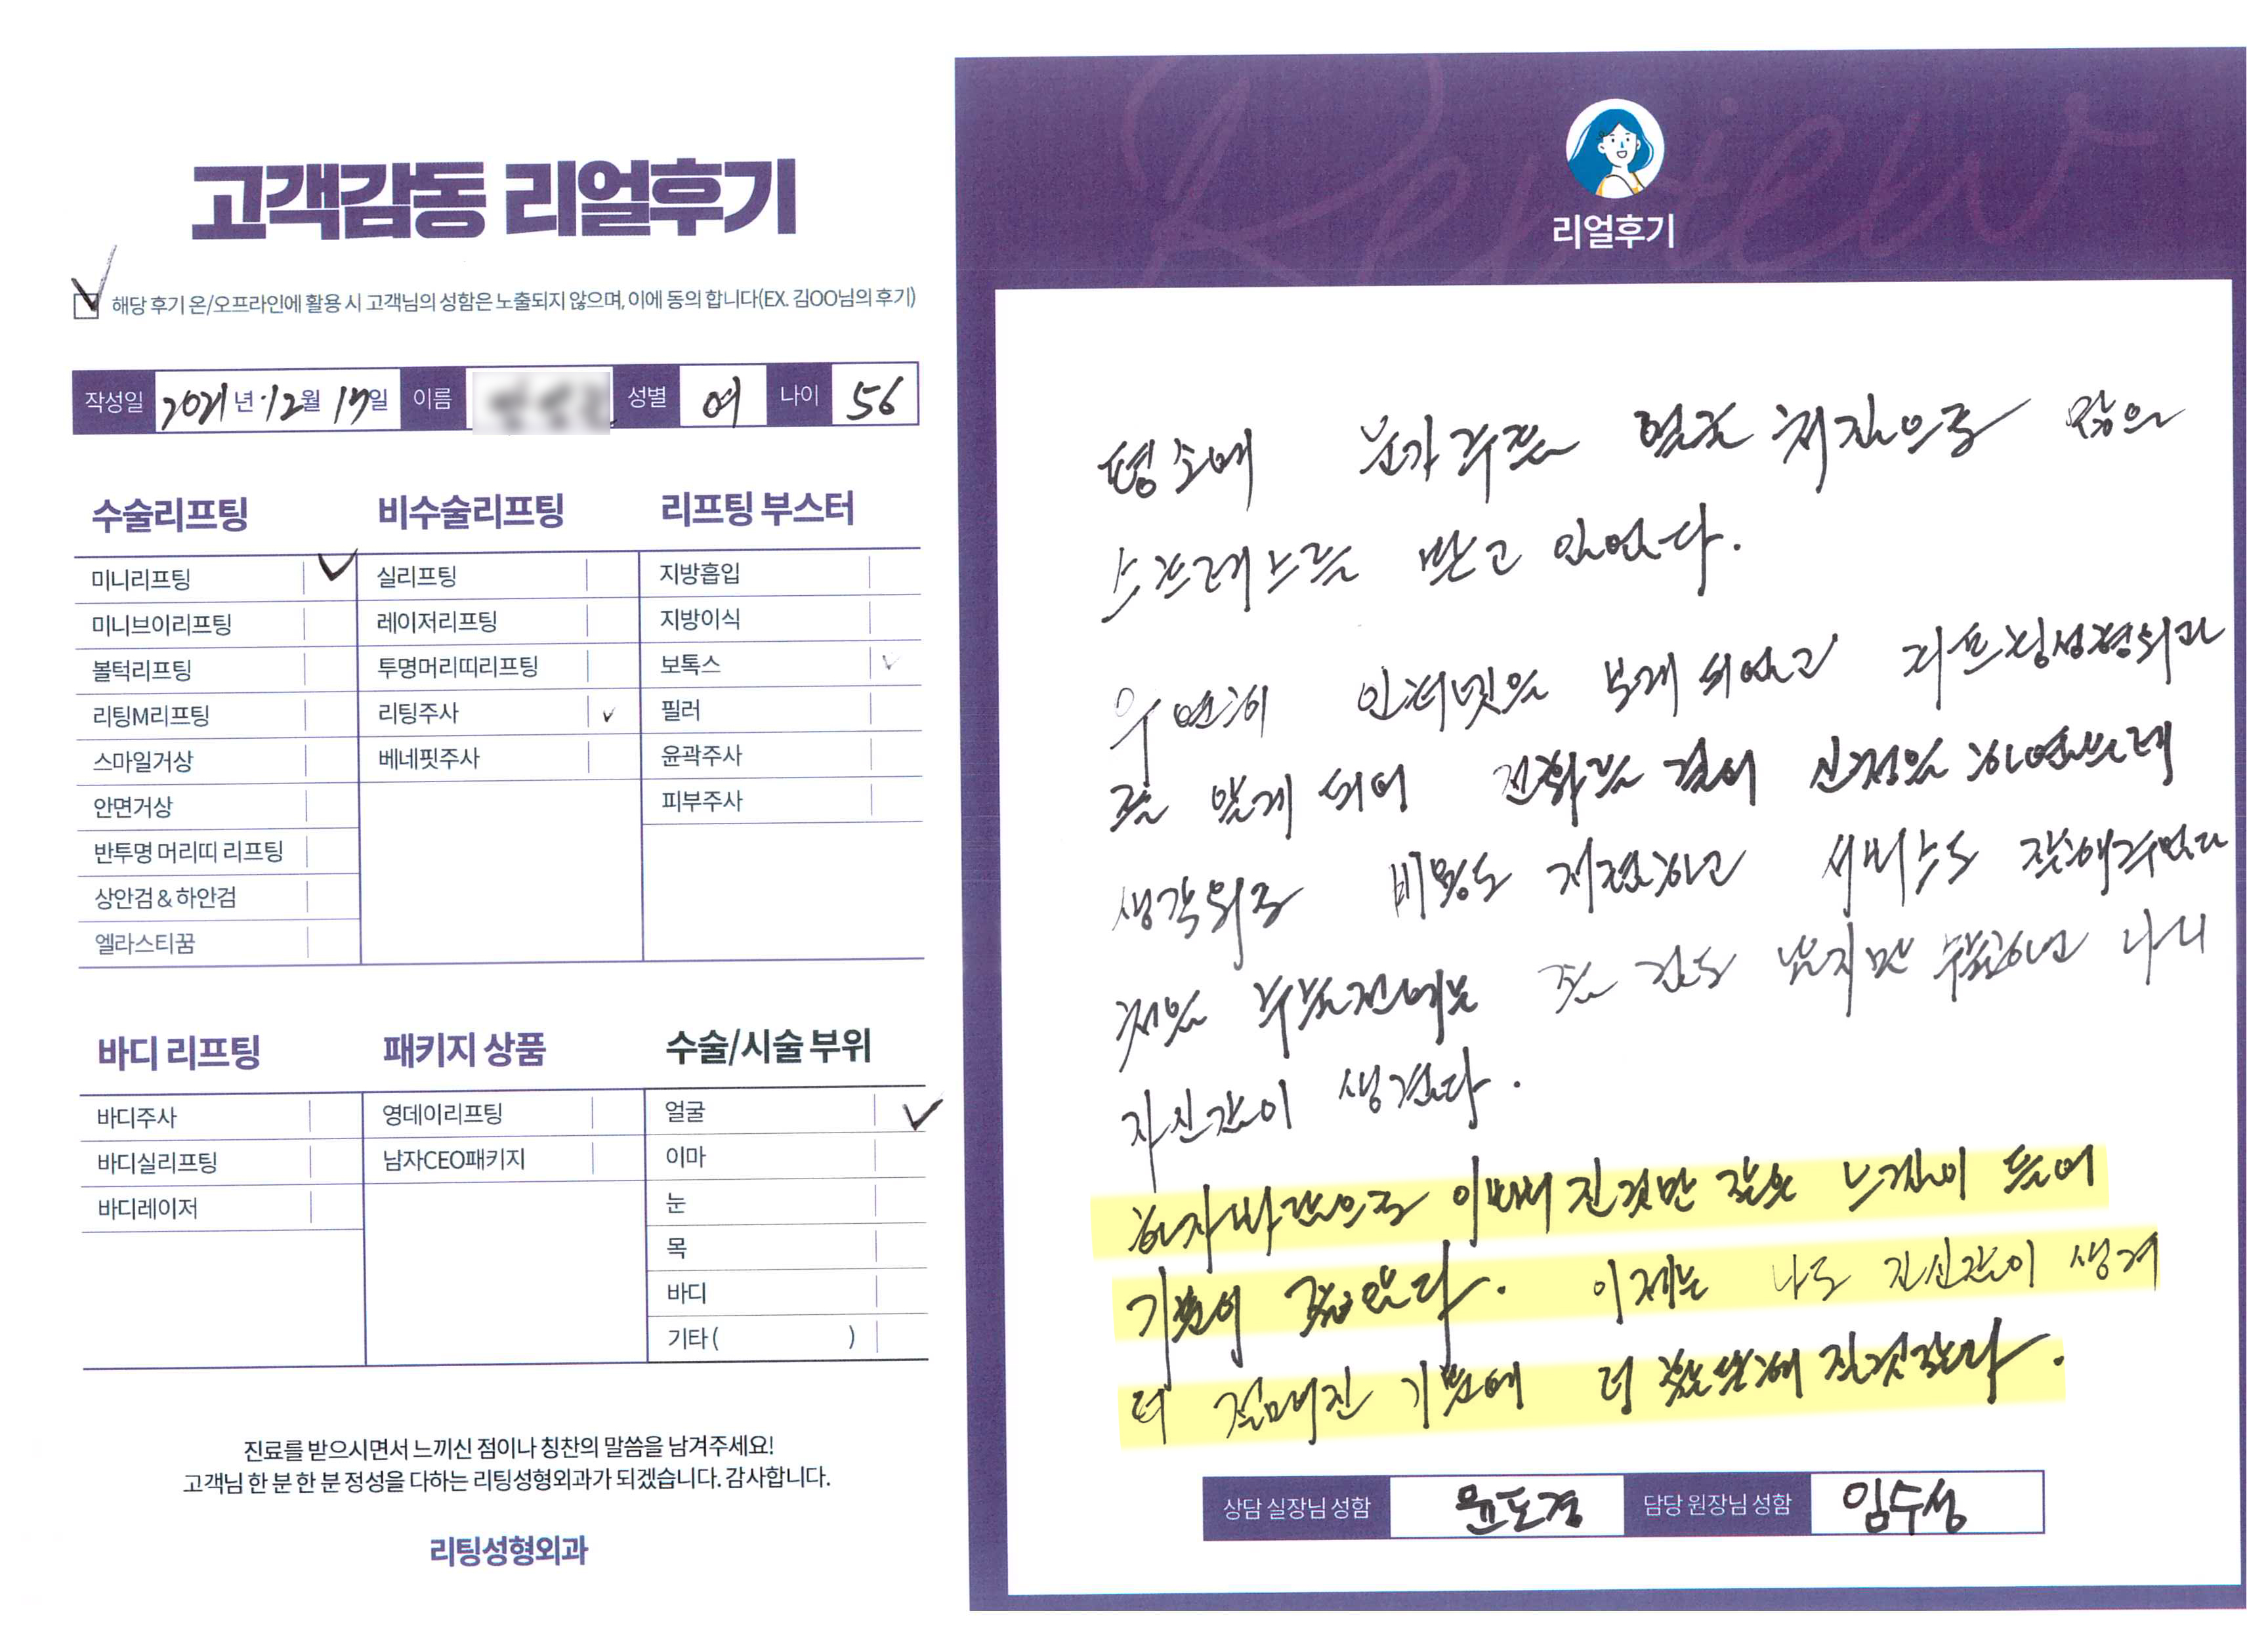 고객감동 리얼후기
해당 후기 온/오프라인에 활용 시 고객님의 성함은 노출되지 않으며, 이에 동의 합니다(EX. 김OO님의 후기)
작성일 2021년 12월 17일 이름 성별 여 나이 56
수술리프팅
미니리프팅
미니브이리프팅
볼턱리프팅
리팅M리프팅
스마일거상
안면거상
반투명 머리띠 리프팅
상안검 & 하안검
엘라스티꿈
비수술리프팅
실리프팅
레이저리프팅
투명머리띠리프팅
리팅주사
베네핏주사
리프팅 부스터
지방흡입
지방이식
보톡스
필러
윤곽주사
피부주사
바디 리프팅
바디주사
바디실리프팅
바디레이저
패키지 상품
영데이리프팅
남자CEO패키지
수술/시술 부위
얼굴
이마
눈
목
바디
기타 ( )
진료를 받으시면서 느끼신 점이나 칭찬의 말씀을 남겨주세요!
고객님 한 분 한 분 정성을 다하는 리팅성형외과가 되겠습니다. 감사합니다.
리팅성형외과
Review
리얼후기
평소에 눈가 주름 얼굴 처짐으로 많은
스트레스를 받고 있었다.
우연히 인터넷을 보게 되었고 리프팅성형외과
를 알게 되어 전화를 걸어 신청을 하였는데
생각외로 비용도 저렴하고 서비스도 잘해주었다
처음 수술전에는 좀 겁도 났지만 수술하고 나니
자신감이 생겼다.
하자마자으로 이뻐진것만 같은 느낌이 들어
기분이 좋았다. 이제는 나도 자신감이 생겨
더 젊어진 기분에 더 활발해 진것같다.
상담 실장님 성함 윤도경 담당 원장님 성함 임수성